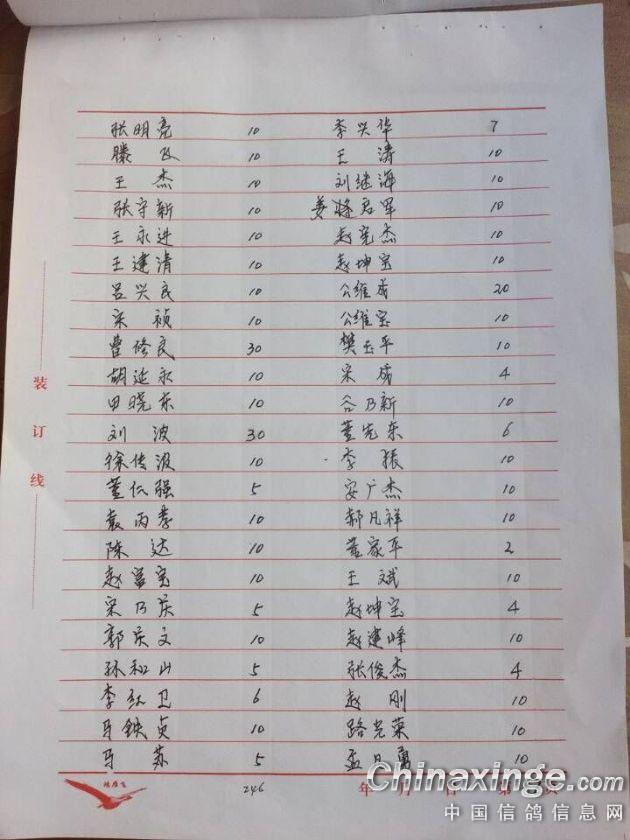 张明亮 10 李兴华 7
滕飞 10 王涛 10
王杰 10 刘继海 10
张守新 10 姜将君军 10
王永进 10 赵亮杰 10
王建清 10 赵坤宝 10
吕兴良 10 公维成 20
宋祯 10 公维宝 10
曹修良 30 樊玉平 10
胡延永 10 宋成 4
田晓东 10 谷乃新 10
刘波 30 董先东 6
徐传波 10 李振 10
董仁强 5 安广杰 10
袁丙孝 10 郝凡祥 10
陈达 10 董家平 2
赵富宝 10 王斌 10
宋乃庆 5 赵坤宝 4
郭庆文 10 赵建峰 10
孙和山 5 张俊杰 4
李红卫 6 赵刚 10
马铁贞 10 路光荣 10
马苏 5 孟凡勇 10
246
年 月 日 第 页
装订线
Chinaxinge.com
中国信鸽信息网